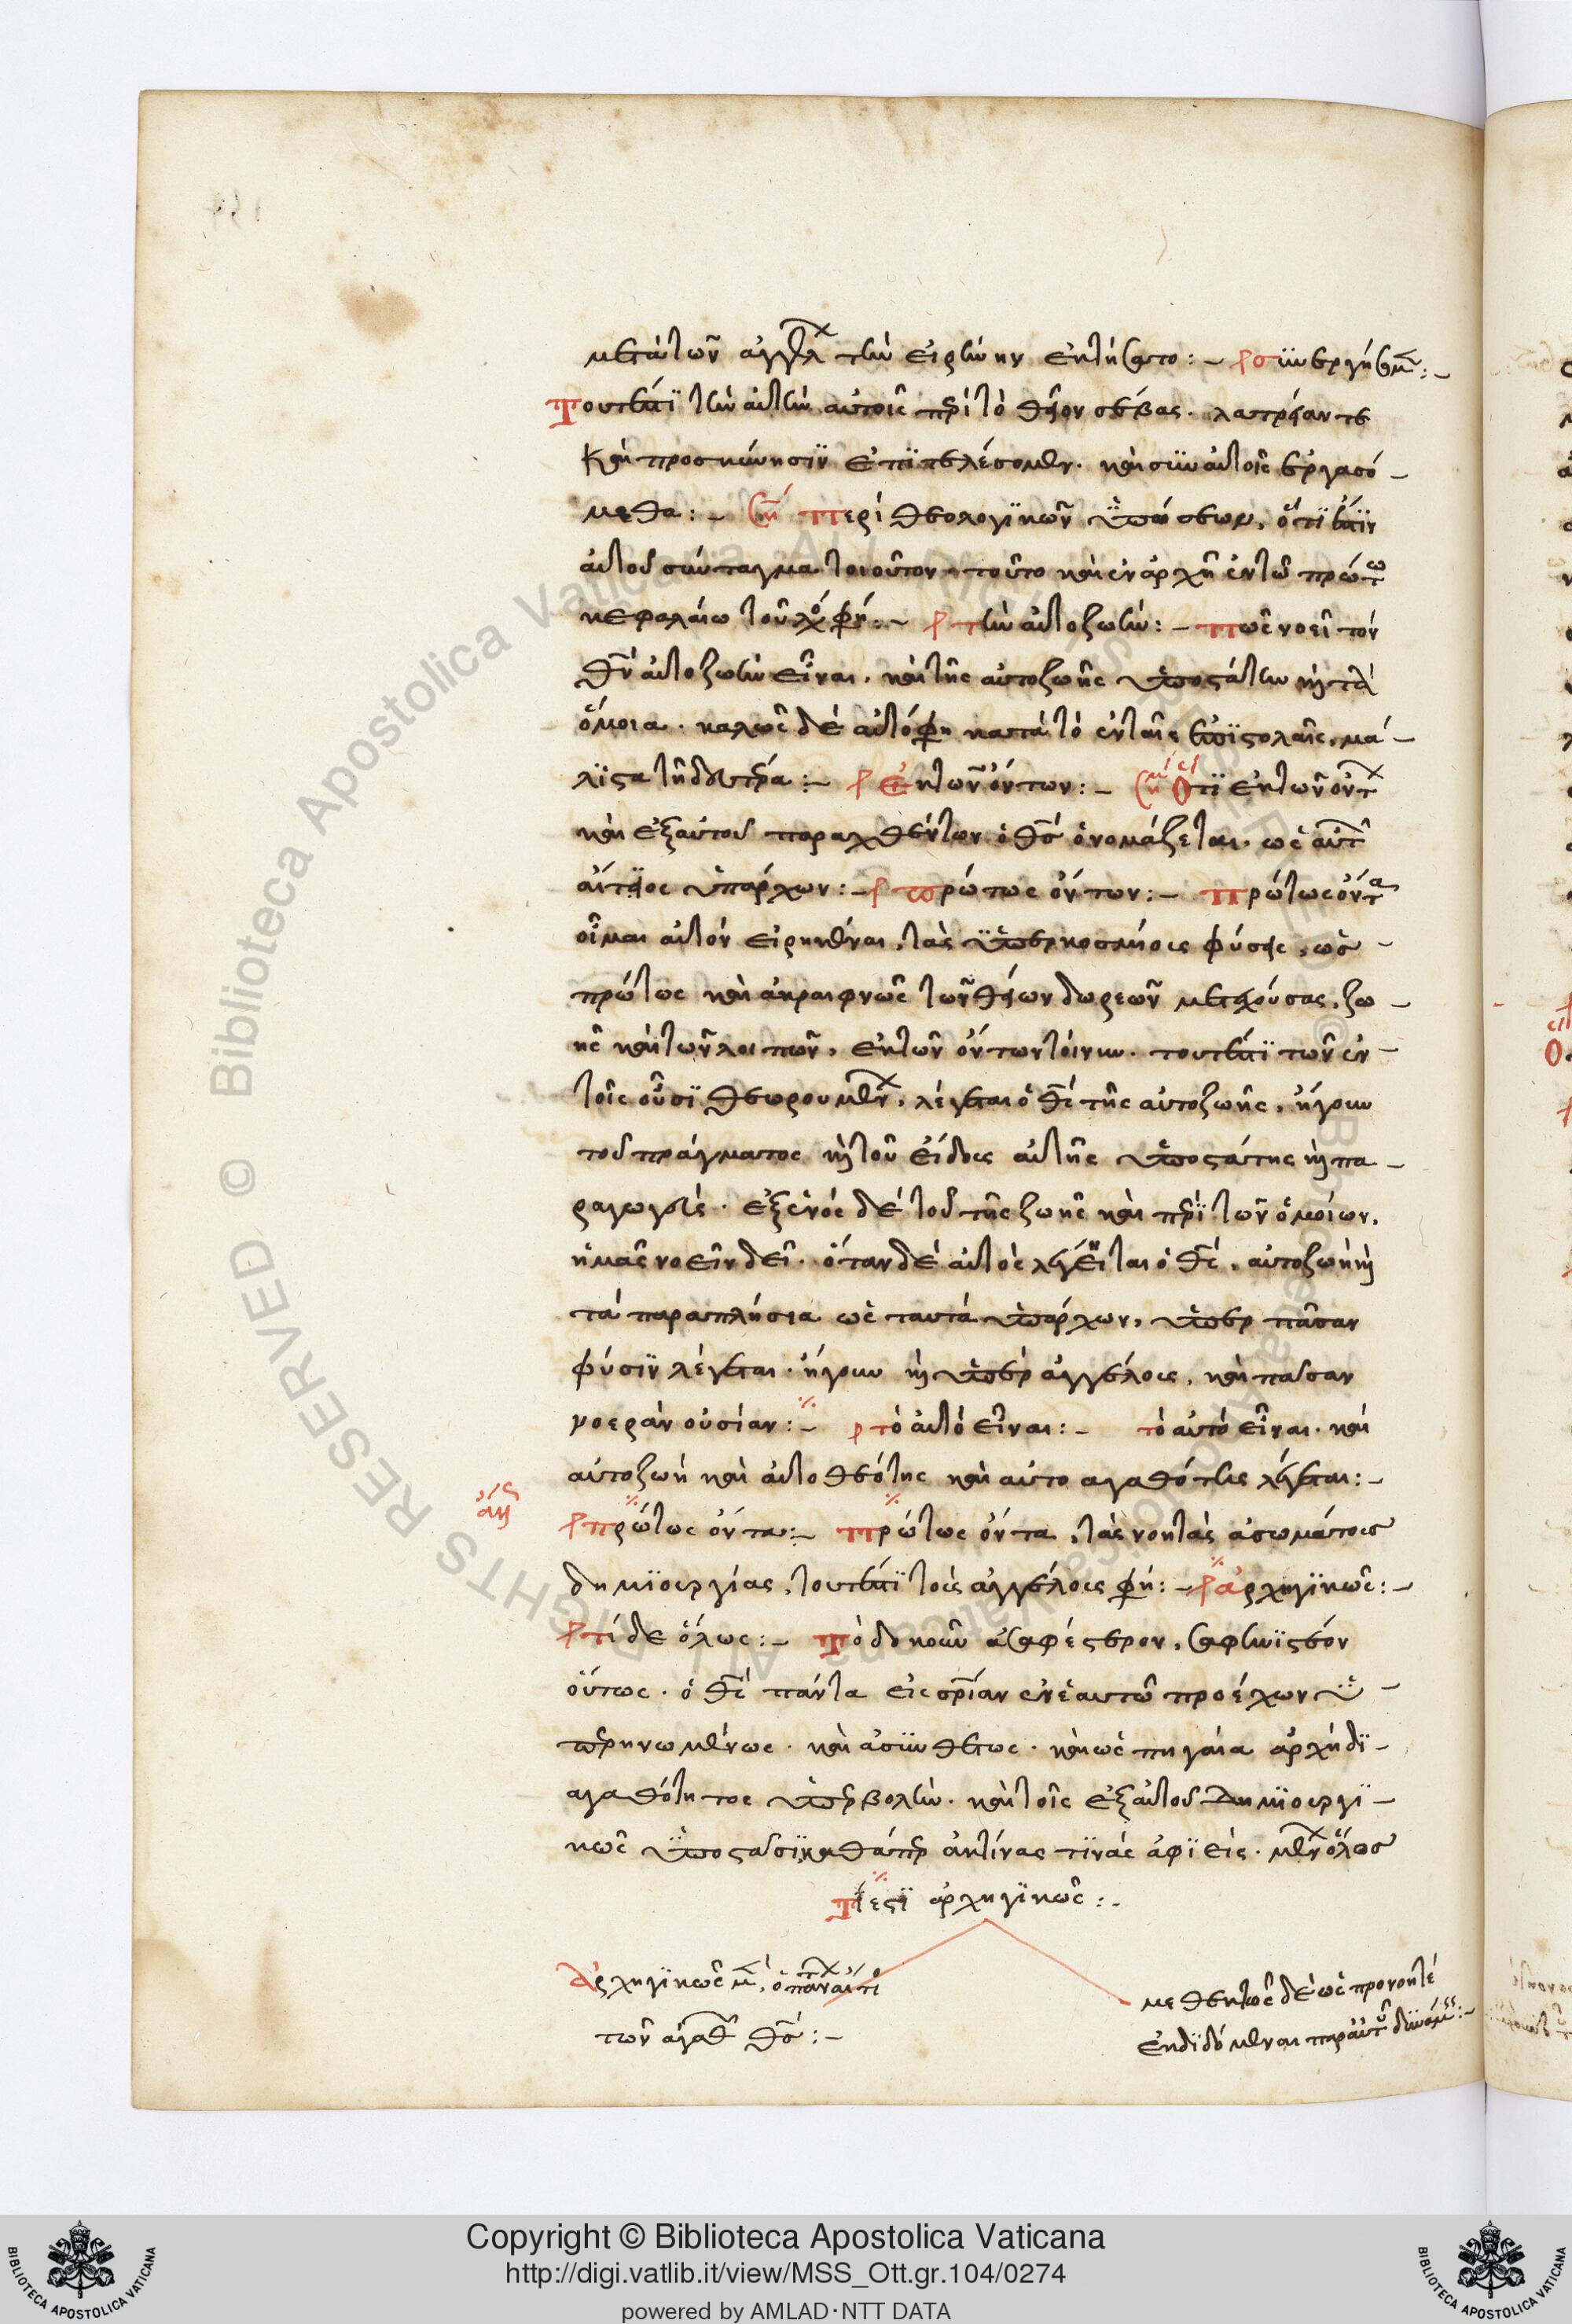 μετὰ τῶν ἀγγέλ τὴν εἰρήνην ἐκτήσατο :- συνεργήσωμ :-
Τουτέστι τὴν αὐτὴν αὐτοῖς περὶ τὸ θεῖον σέβας. λατρείαν τε
καὶ προσκύνησιν ἐπιτελέσομεν. καὶ σὺν αὐτοῖς ἐργασό-
μεθα :- ση περὶ θεολογικῶν ὑποτυπώσεων, ὅτι ἐστὶν
αὐτοῦ σύνταγμα τοιοῦτον· τοῦτο καὶ ἐν ἀρχῇ ἐν τῷ πρώτω
κεφαλαίω τοῦ λόγου φη :- τὴν αὐτοζωήν :- πῶς νοεῖ τὸν
θν αὐτοζωὴν εἶναι. καὶ τῆς αὐτοζωῆς ὑποστάτην καὶ τὰ
ὅμοια. καλῶς δὲ αὐτό φη κατὰ τὸ ἐν ταῖς ἐπιστολαῖς, μά-
λιστα τῇ δευτέρα :- ἐκ τῶν ὄντων :- ση Ὅτι ἐκ τῶν ὄντ
καὶ ἐξ αὐτοῦ παραχθέντων ὁ θς ὀνομάζεται. ὡς αὐτ
αἴτιος ὑπάρχων :- πρώτως ὄντων :- πρώτως ὄντα
οἶμαι αὐτὸν εἰρηκέναι, τὰς ὑπερκοσμίους φύσεις, ὡς
πρώτως καὶ ἀκραιφνῶς τῶν θείων δωρεῶν μετεχούσας, ζω-
ῆς καὶ τῶν λοιπῶν. ἐκ τῶν ὄντων τοίνυν. τουτέστι τῶν ἐν
τοῖς οὖσι θεωρουμέν, λέγεται ὁ θς τῆς αὐτοζωῆς, ἤγουν
τοῦ πράγματος καὶ τοῦ εἴδους αὐτῆς ὑποστάτης καὶ πα-
ραγωγεύς. ἐξ ἑνὸς δὲ τοῦ τῆς ζωῆς καὶ περὶ τῶν ὁμοίων,
ἡμᾶς νοεῖν δεῖ. ὅταν δὲ αὐτὸς λέγηται ὁ θς, αὐτοζωὴ καὶ
τὰ παραπλήσια ὡς ταῦτα ὑπάρχων, ὑπὲρ πᾶσαν
φύσιν λέγεται. ἤγουν καὶ ὑπὲρ ἀγγέλους, καὶ πᾶσαν
νοερὰν οὐσίαν :- τὸ αὐτὸ εἶναι :- τὸ αὐτὸ εἶναι. καὶ
αὐτοζωὴ καὶ αὐτοθεότης καὶ αὐτοαγαθότης λέγεται :-
πρώτως ὄντα :- πρώτως ὄντα, τὰς νοητὰς ἀσωμάτους
δημιουργίας, τουτέστι τοὺς ἀγγέλους φη :- ἀρχηγικῶς :-
τί δὲ ὅλως :- Τὸ δοκοῦν ἀσαφέστερον, σαφηνιστέον
οὕτως. ὁ θς πάντα εἰς οσίαν ἐν ἑαυτῷ προέχων ὑ-
περηνωμένως. καὶ ἀσυνθέτως. καὶ ὡς πηγαία ἀρχὴ δι-
αγαθότητος ὑπερβολήν. καὶ τοῖς ἐξ αὐτοῦ δημιουργι-
κῶς ὑποστᾶσι, καθάπερ ἀκτίνας τινὰς ἀφιείς. μὲν ὅλως
Τί ἐστι ἀρχηγικῶς :-
Ἀρχηγικῶς μ, ὁ πάντ αἴτιο
τῶν ἀγαθ θς :-
μεθεκτῶς δὲ ὡς προνοητι
ἐκδιδόμεναι παρ αὐτοῦ δυνάμεις :-